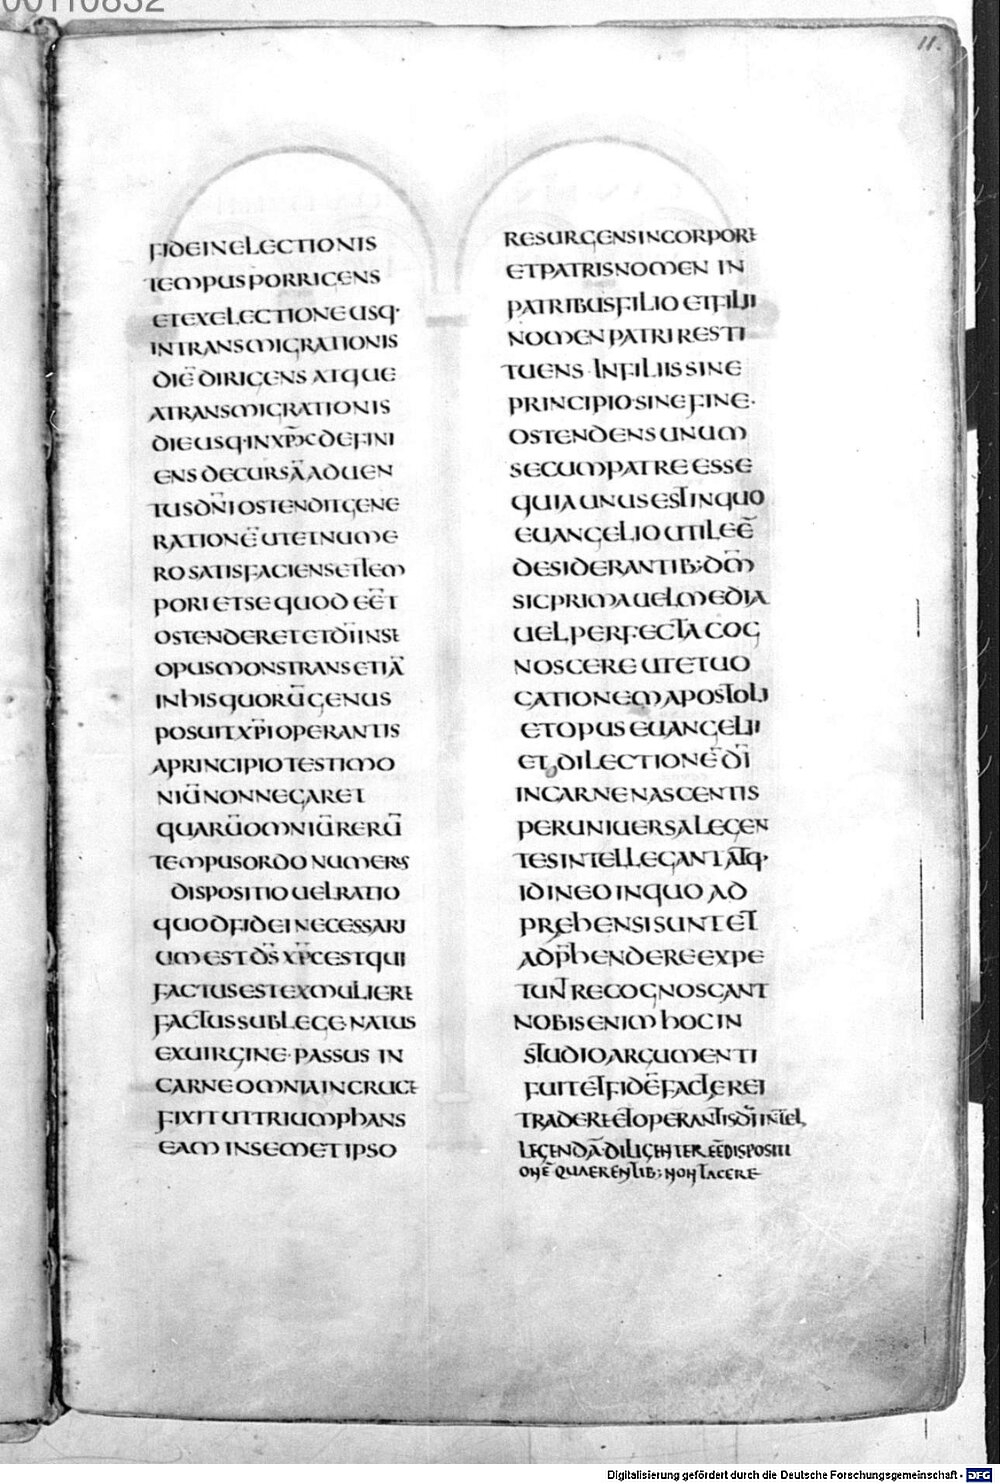 00110832
11.
FIDEINELECTIONIS
TEMPUSPORRIGENS
ETEXELECTIONEUSQ·
INTRANSMIGRATIONIS
DIĒ DIRIGENS ATQUE
ATRANSMIGRATIONIS
DIEUSQ·INXP̄C DEFINI
ENS DECURSĀ ADUEN
TUSDN̄I OSTENDIT GENE
RATIONĒ UTETNUME
RO SATISFACIENSETTEM
PORI ETSE QUOD EĒT
OSTENDERETETDĪ INSE
OPUSMONSTRANS ETIĀ
INHIS QUORŪ GENUS
POSUIT XP̄I OPERANTIS
APRINCIPIO TESTIMO
NIŪ NONNEGARET
QUARŪ OMNIŪ RERŪ
TEMPUSORDO NUMERS
DISPOSITIO UELRATIO
QUODFIDEI NECESSARI
UMEST DS̄ XP̄CESTQUI
FACTUSESTEXMULIERE
FACTUSSUBLEGE·NATUS
EXUIRGINE·PASSUS IN
CARNEOMNIAINCRUCE
FIXIT UTTRIUMPHANS
EAM INSEMETIPSO
RESURGENSINCORPORE
ETPATRISNOMEN IN
PATRIBUSFILIO ETFILII
NOMENPATRIRESTI
TUENS INFILIIS SINE
PRINCIPIO·SINEFINE·
OSTENDENSUNUM
SECUMPATREESSE
QUIAUNUSESTINQUO
EUANGELIO UTILEĒ
DESIDERANTIB;DM̄
SICPRIMAUELMEDIA
UELPERFECTA COG
NOSCERE UTETUO
CATIONEMAPOSTOLI
ETOPUS EUANGELII
ET DILECTIONĒ DĪ
INCARNENASCENTIS
PERUNIUERSALEGEN
TESINTELLEGANT ATQ·
IDINEO INQUO AD
PREHENSISUNT ET
ADP̄HENDEREEXPE
TUNT RECOGNOSCANT
NOBISENIM HOCIN
STUDIOARGUMENTI
FUITETFIDĒFACTEREI
TRADERE ETOPERANTISDĪ INTEL
LEGENDĀ·DILIGENTER EĒDISPOSITI
ONĒ QUAERENTIB; NONTACERE
Digitalisierung gefördert durch die Deutsche Forschungsgemeinschaft - DFG